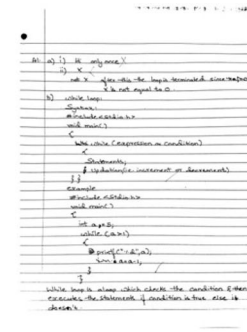 a) i) It only once X
ii) X
after this the loop is terminated since
x is not equal to 0
b) while loop:
Syntax:
#include <stdio.h>
void main()
{
while (expression or condition)
{
Statements;
Updation(ie. increment or decrement)
}}
example
#include <stdio.h>
void main()
{
int a=5;
while (a>1)
{
printf("%d",a);
a=a-1;
}
}
While loop is a loop which checks the condition & then
executes the statements if condition is true else it
doesn't